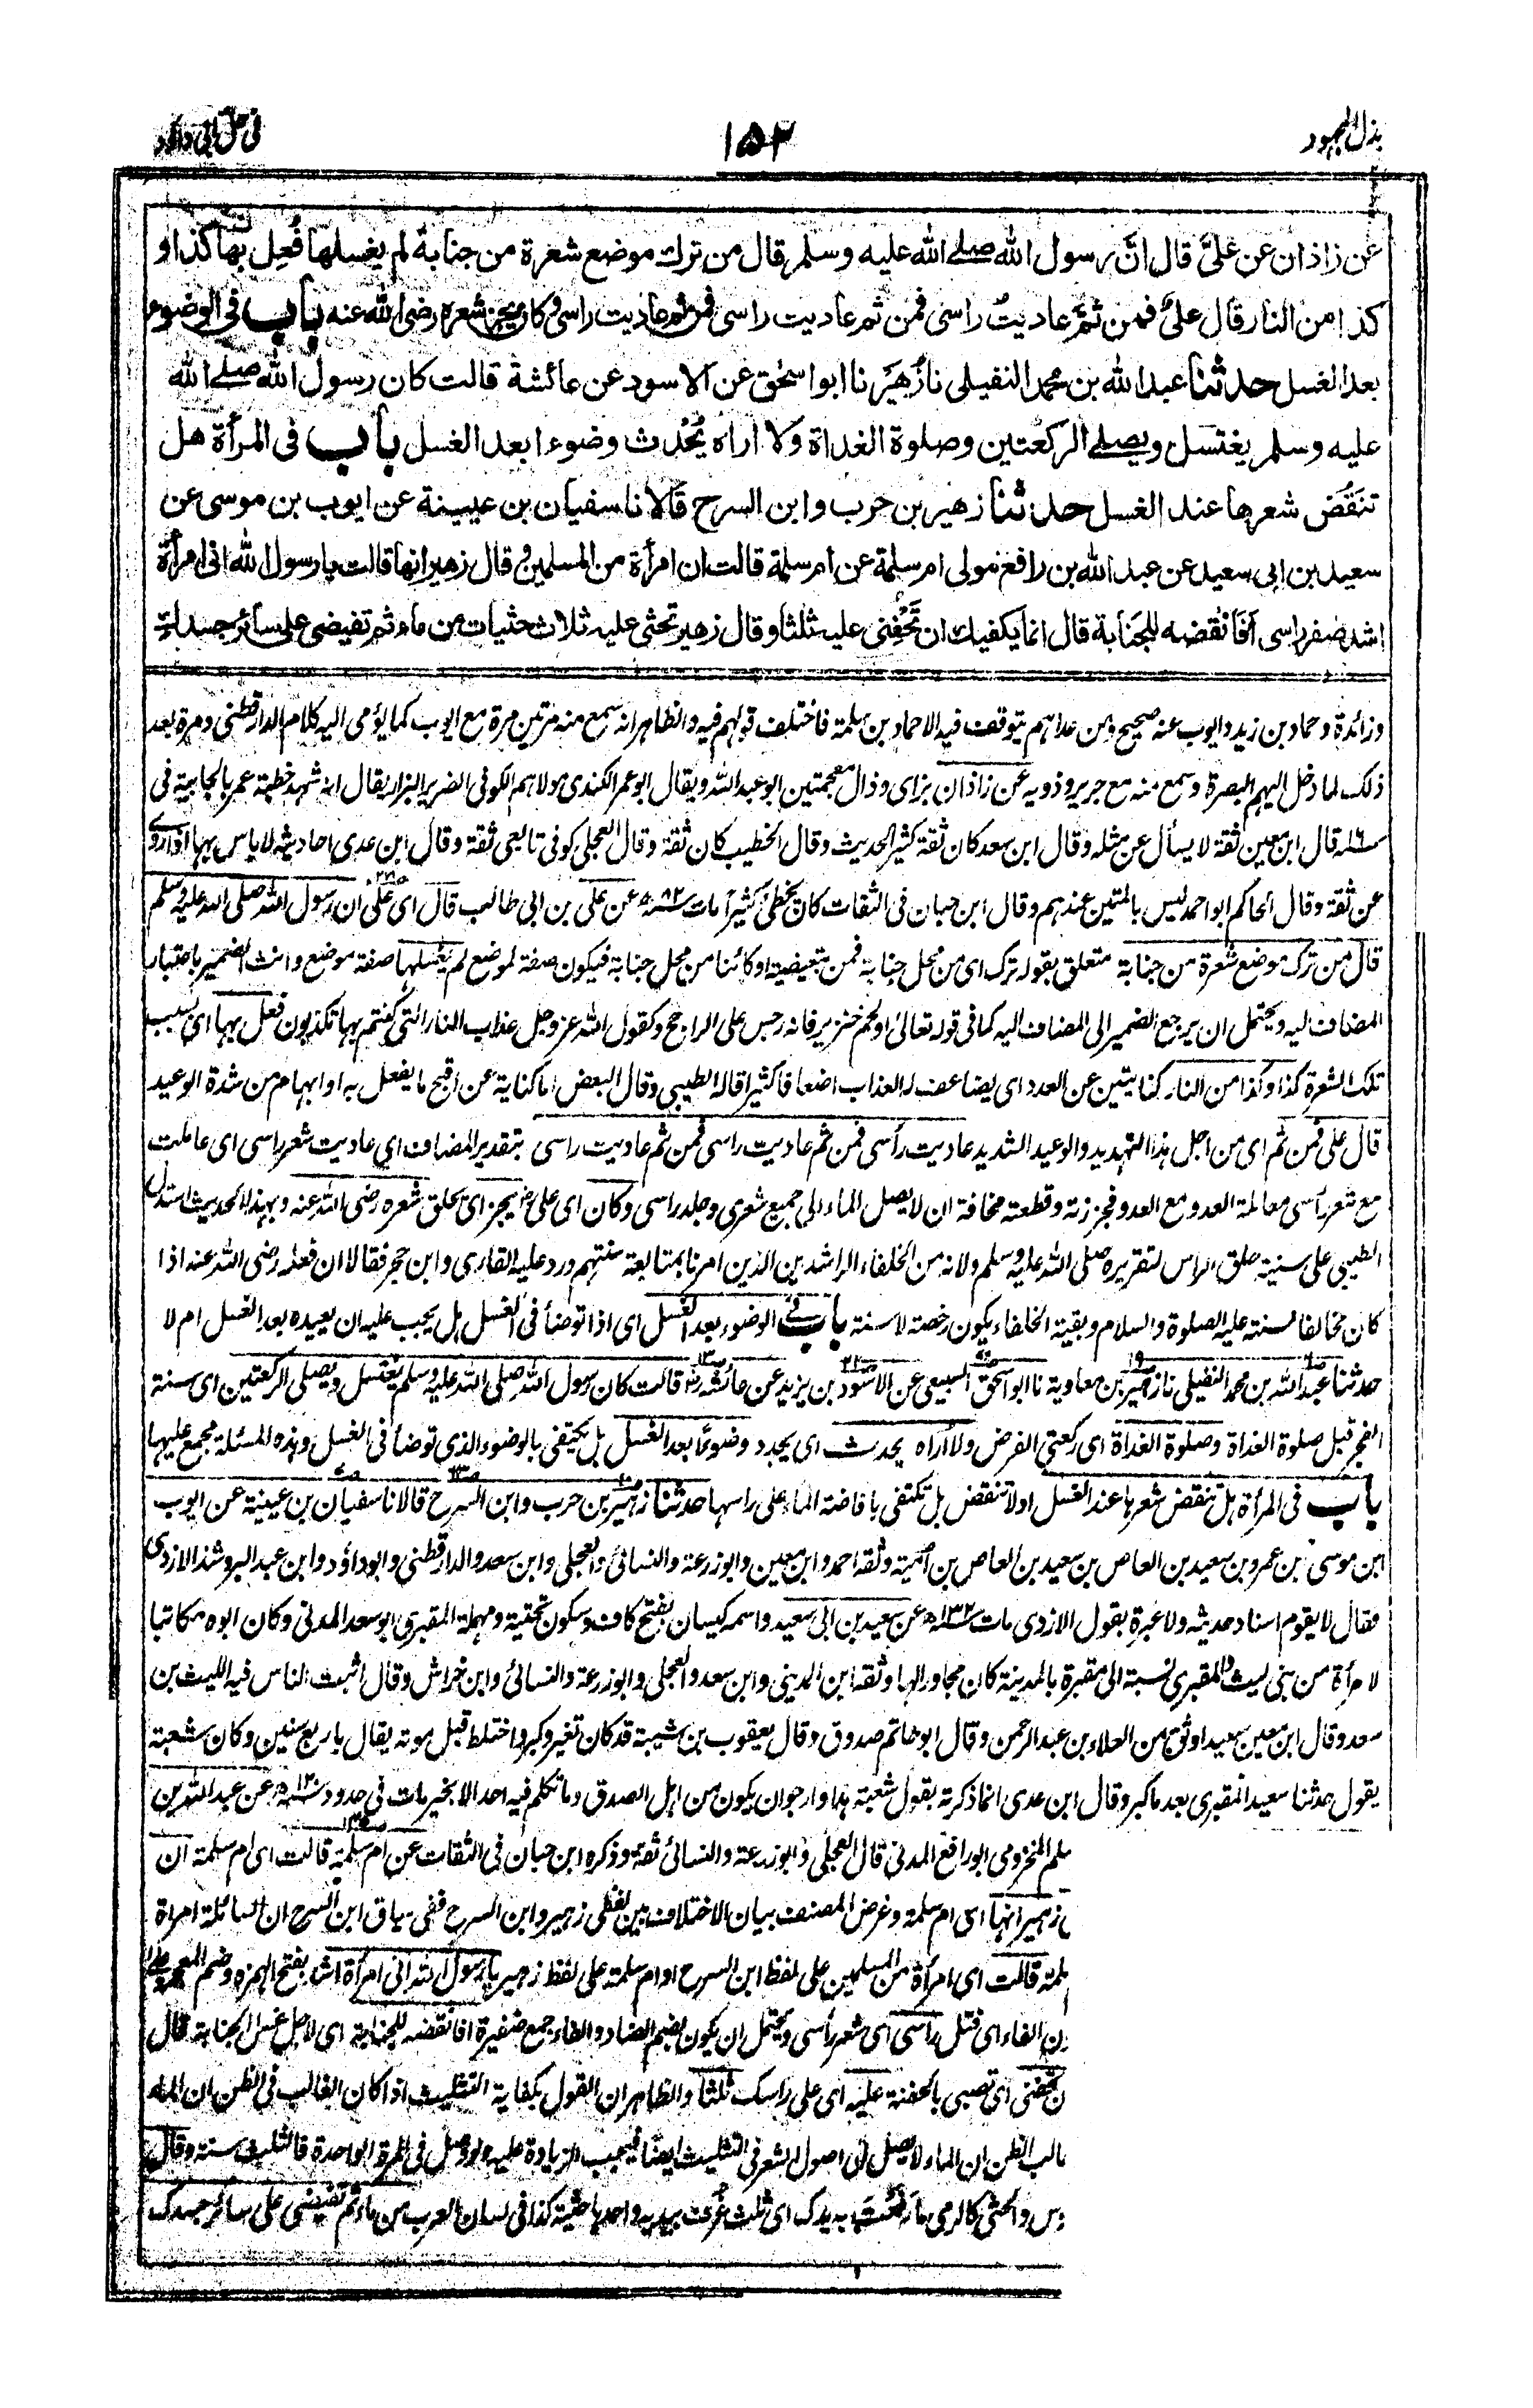 بذل المجهود
١٥٣
في حل ابي داؤد
عن زاذان عن عليّ قال انّ رسول الله صلے الله عليه وسلم قال من ترك موضع شعرة من جنابة لم يغسلها فُعِل بها كذا و
كذا من النار قال عليّ فمن ثَمَّ عاديتُ راسى فمن ثم عاديت راسى فمن ثم عاديت راسى وكان يجز شعره رضى الله عنه باب فى الوضوء
بعد الغسل حدثنا عبد الله بن محمد النفيلى نا زُهَيرٌ نا ابو اسحٰق عن الاسود عن عائشة قالت كان رسول الله صلے الله
عليه وسلم يغتسل ويصلے الركعتين وصلوة الغداة ولا اراه يُحْدِث وضوءا بعد الغسل باب فى المرأة هل
تنقض شعرها عند الغسل حدثنا زهير بن حرب وابن السرح قالا نا سفيان بن عيينة عن ايوب بن موسى عن
سعيد بن ابى سعيد عن عبد الله بن رافع مولى ام سلمة عن ام سلمة قالت ان امرأة من المسلمين وقال زهير انها قالت يا رسول الله انى امرأة
اشد ضفر راسى أفأنقضه للجنابة قال انما يكفيك ان تَحْفِنى عليه ثلثا وقال زهير تحثى عليه ثلاث حثيات من ماء ثم تفيضى على سائر جسدك
وزائدة وحماد بن زيد وايوب عنه صحيح ومن عداهم يتوقف فيه الا حماد بن سلمة فاختلف قولهم فيه والظاهر انه سمع منه مرتين مرة مع ايوب كما يؤمى اليه كلام الدارقطنى ومرة بعد
ذلك لما دخل اليهم البصرة وسمع منه مع جرير وذويه عن زاذان بزاى وذال معجمتين ابو عبد الله ويقال ابو عمر الكندى مولاهم الكوفى الضرير البزار يقال انه شهد خطبة عمر بالجابية فى
سنة ١٦ قال ابن معين ثقة لا يسأل عن مثله وقال ابن سعد كان ثقة كثير الحديث وقال الخطيب كان ثقة وقال العجلى كوفى تابعى ثقة وقال ابن عدى احاديثه لا باس بها اذا روى
عن ثقة وقال الحاكم ابو احمد ليس بالمتين عندهم وقال ابن حبان فى الثقات كان يخطئ كثيرا مات سنة ٨٢ھ عن على بن ابى طالب قال اى على ان رسول الله صلى الله عليه وسلم
قال من ترك موضع شعرة من جنابة متعلق بقوله ترك اى من محل جنابة فمن تبعيضية او كائنا من محل جنابة فيكون صفة لموضع لم يغسلها صفة موضع وانث الضمير باعتبار
المضاف اليه ويحتمل ان يرجع الضمير الى المضاف اليه كما فى قوله تعالى او لحم خنزير فانه رجس على الراجح وكقول الله عز وجل عذاب النار التى كنتم بها تكذبون فعل بها اى بسبب
تلك الشعرة كذا وكذا من النار كنايتين عن العدد اى يضاعف له العذاب اضعافا كثيرا قاله الطيبى وقال البعض اما كناية عن اقبح ما يفعل به او ابهام من شدة الوعيد
قال على فمن ثم اى من اجل هذا التهديد والوعيد الشديد عاديت رأسى فمن ثم عاديت راسى فمن ثم عاديت راسى بتقدير المضاف اى عاديت شعر راسى اى عاملت
مع شعر رأسى معاملة العدو مع العدو فجززته وقطعته مخافة ان لا يصل الماء الى جميع شعرى وجلد راسى وكان اى على يجز اى يحلق شعره رضى الله عنه وبهذا الحديث استدل
الطيبى على سنية حلق الراس لتقريره صلى الله عليه وسلم ولانه من الخلفاء الراشدين الذين امرنا بمتابعة سنتهم ورد عليه القارى وابن حجر فقالا ان فعله رضى الله عنه اذا
كان مخالفا لسنته عليه الصلوة والسلام وبقية الخلفاء يكون رخصة لا سنة باب فى الوضوء بعد الغسل اى اذا توضأ فى الغسل هل يجب عليه ان يعيده بعد الغسل ام لا
حدثنا عبد الله بن محمد النفيلى نا زهير بن معاوية نا ابو اسحق السبيعى عن الاسود بن يزيد عن عائشة رض قالت كان رسول الله صلى الله عليه وسلم يغتسل ويصلى الركعتين اى سنة
الفجر قبل صلوة الغداة وصلوة الغداة اى ركعتى الفرض ولا أراه يحدث اى يجدد وضوءًا بعد الغسل بل يكتفى بالوضوء الذى توضأ فى الغسل وهذه المسئلة مجمع عليها
باب فى المرأة هل تنقض شعرها عند الغسل او لا تنقض بل تكتفى بافاضة الماء على راسها حدثنا زهير بن حرب وابن السرح قالا نا سفيان بن عيينة عن ايوب
ابن موسى بن عمرو بن سعيد بن العاص بن سعيد بن العاص بن امية وثقه احمد وابن معين وابو زرعة والنسائى والعجلى وابن سعد والدارقطنى وابو داؤد وابن عبد البر وشذ الازدى
فقال لا يقوم اسناد حديثه ولا عبرة بقول الازدى مات سنة ١٣٢ھ عن سعيد بن ابى سعيد واسمه كيسان بفتح كاف وسكون تحتية ومهملة المقبرى ابو سعد المدنى وكان ابوه مكاتبا
لامرأة من بنى ليث والمقبرى نسبة الى مقبرة بالمدينة كان مجاورا لها وثقه ابن المدينى وابن سعد والعجلى وابو زرعة والنسائى وابن خراش وقال اثبت الناس فيه الليث بن
سعد وقال ابن معين سعيد اوثق من العلاء بن عبد الرحمن وقال ابو حاتم صدوق وقال يعقوب بن شيبة قد كان تغير وكبر واختلط قبل موته يقال باربع سنين وكان شعبة
يقول حدثنا سعيد المقبرى بعد ما كبر وقال ابن عدى انما ذكرته بقول شعبة هذا وارجو ان يكون من اهل الصدق وما تكلم فيه احد الا بخير مات فى حدود سنة ١٢٠ھ عن عبد الله بن
المخزومى ابو رافع المدنى قال العجلى وابو زرعة والنسائى ثقة وذكره ابن حبان فى الثقات عن ام سلمة قالت اى ام سلمة ان
زهير انها اى ام سلمة وغرض المصنف بيان الاختلاف بين لفظى زهير وابن السرح ففى سياق ابن السرح ان السائلة امراة
قالت اى امرأة من المسلمين على لفظ ابن السرح او ام سلمة على لفظ زهير يا رسول الله انى امرأة اشد بفتح الهمزه وضم
الفاء اى فتل رأسى اى شعر رأسى ويحتمل ان يكون بضم الضاد والفاء جمع ضفيرة افانقضه للجنابة اى لاجل غسل الجنابة قال
تحفنى اى تصبى بالحفنة عليه اى على راسك ثلثا والظاهر ان القول بكفاية التثليث اذا كان الغالب فى الظن ان الماء
الظن ان الماء لا يصل الى اصول الشعر فى التثليث ايضا فيجب الزيادة عليه ولو وصل فى المرة الواحدة فالثلث سنة وقال
والحثى كالرمى ما رفعت به يدك اى ثلث غرفات بيديه واحدها حثية كذا فى لسان العرب من ماء ثم تفيضى على سائر جسدك